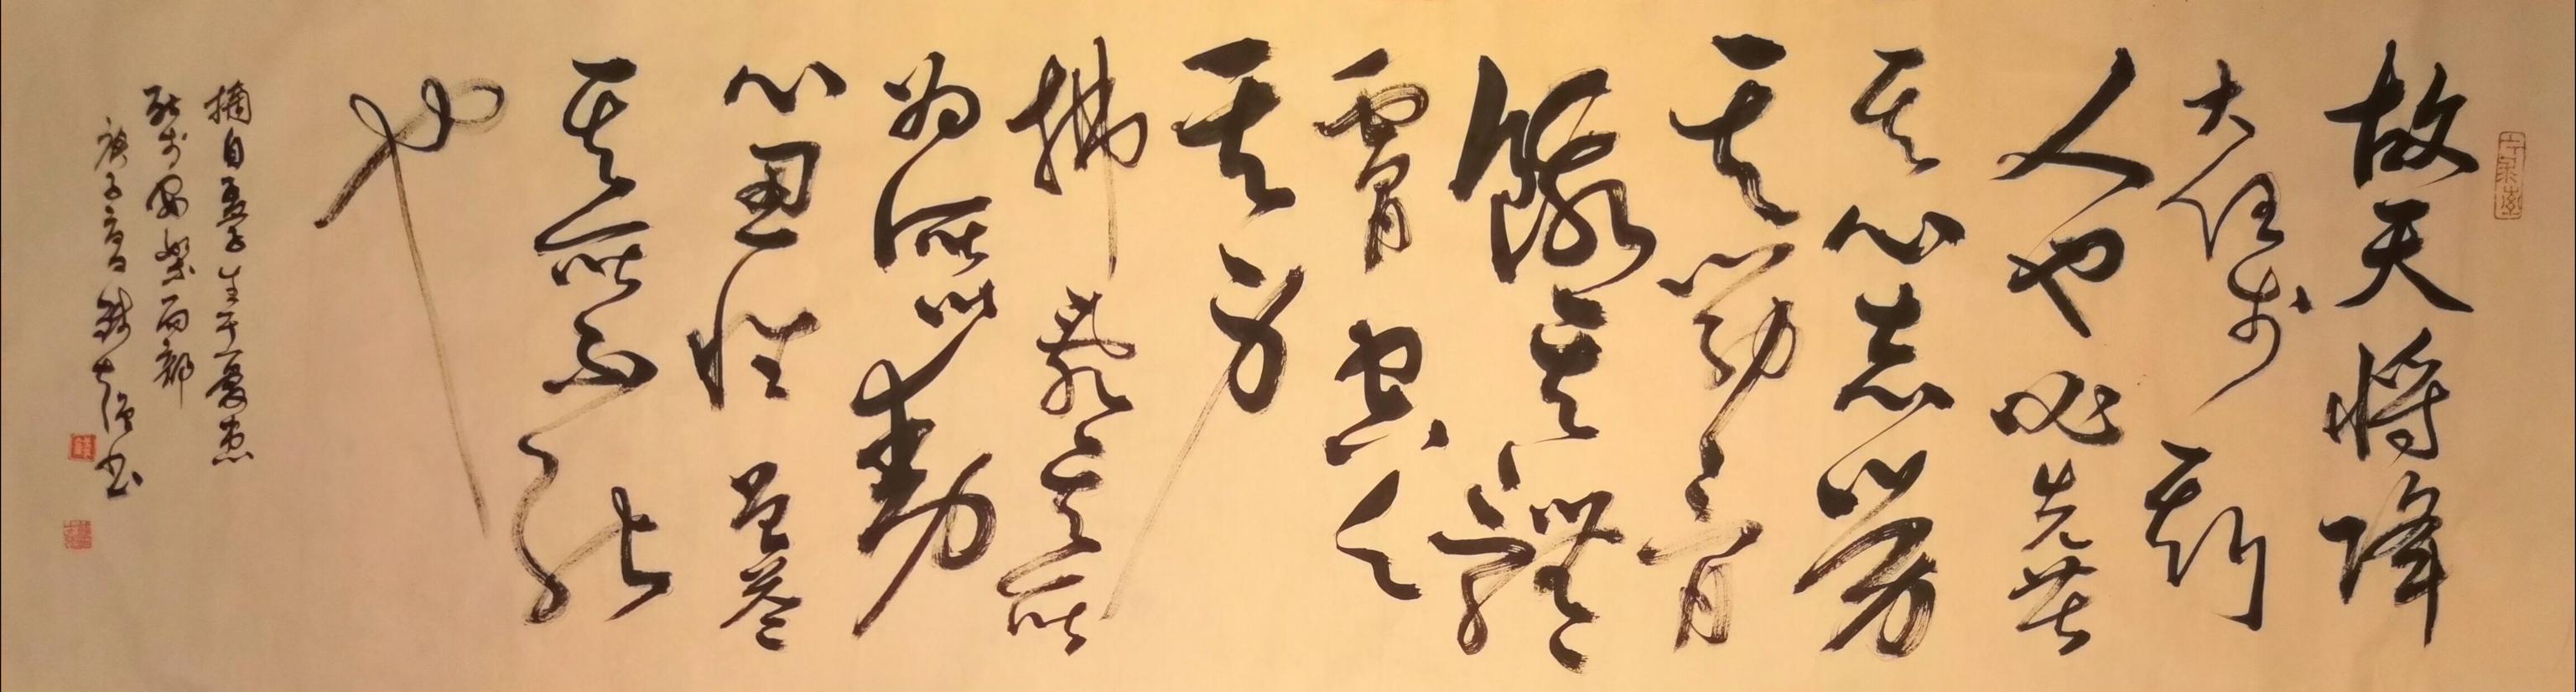 故天将降
大任於斯
人也必先苦
其心志劳
其筋骨
餓其體
膚空乏
其身
拂亂其所
为所以動
心忍性曾益
其所不能
也
摘自孟子生于憂患
死於安樂
庚子春月
书